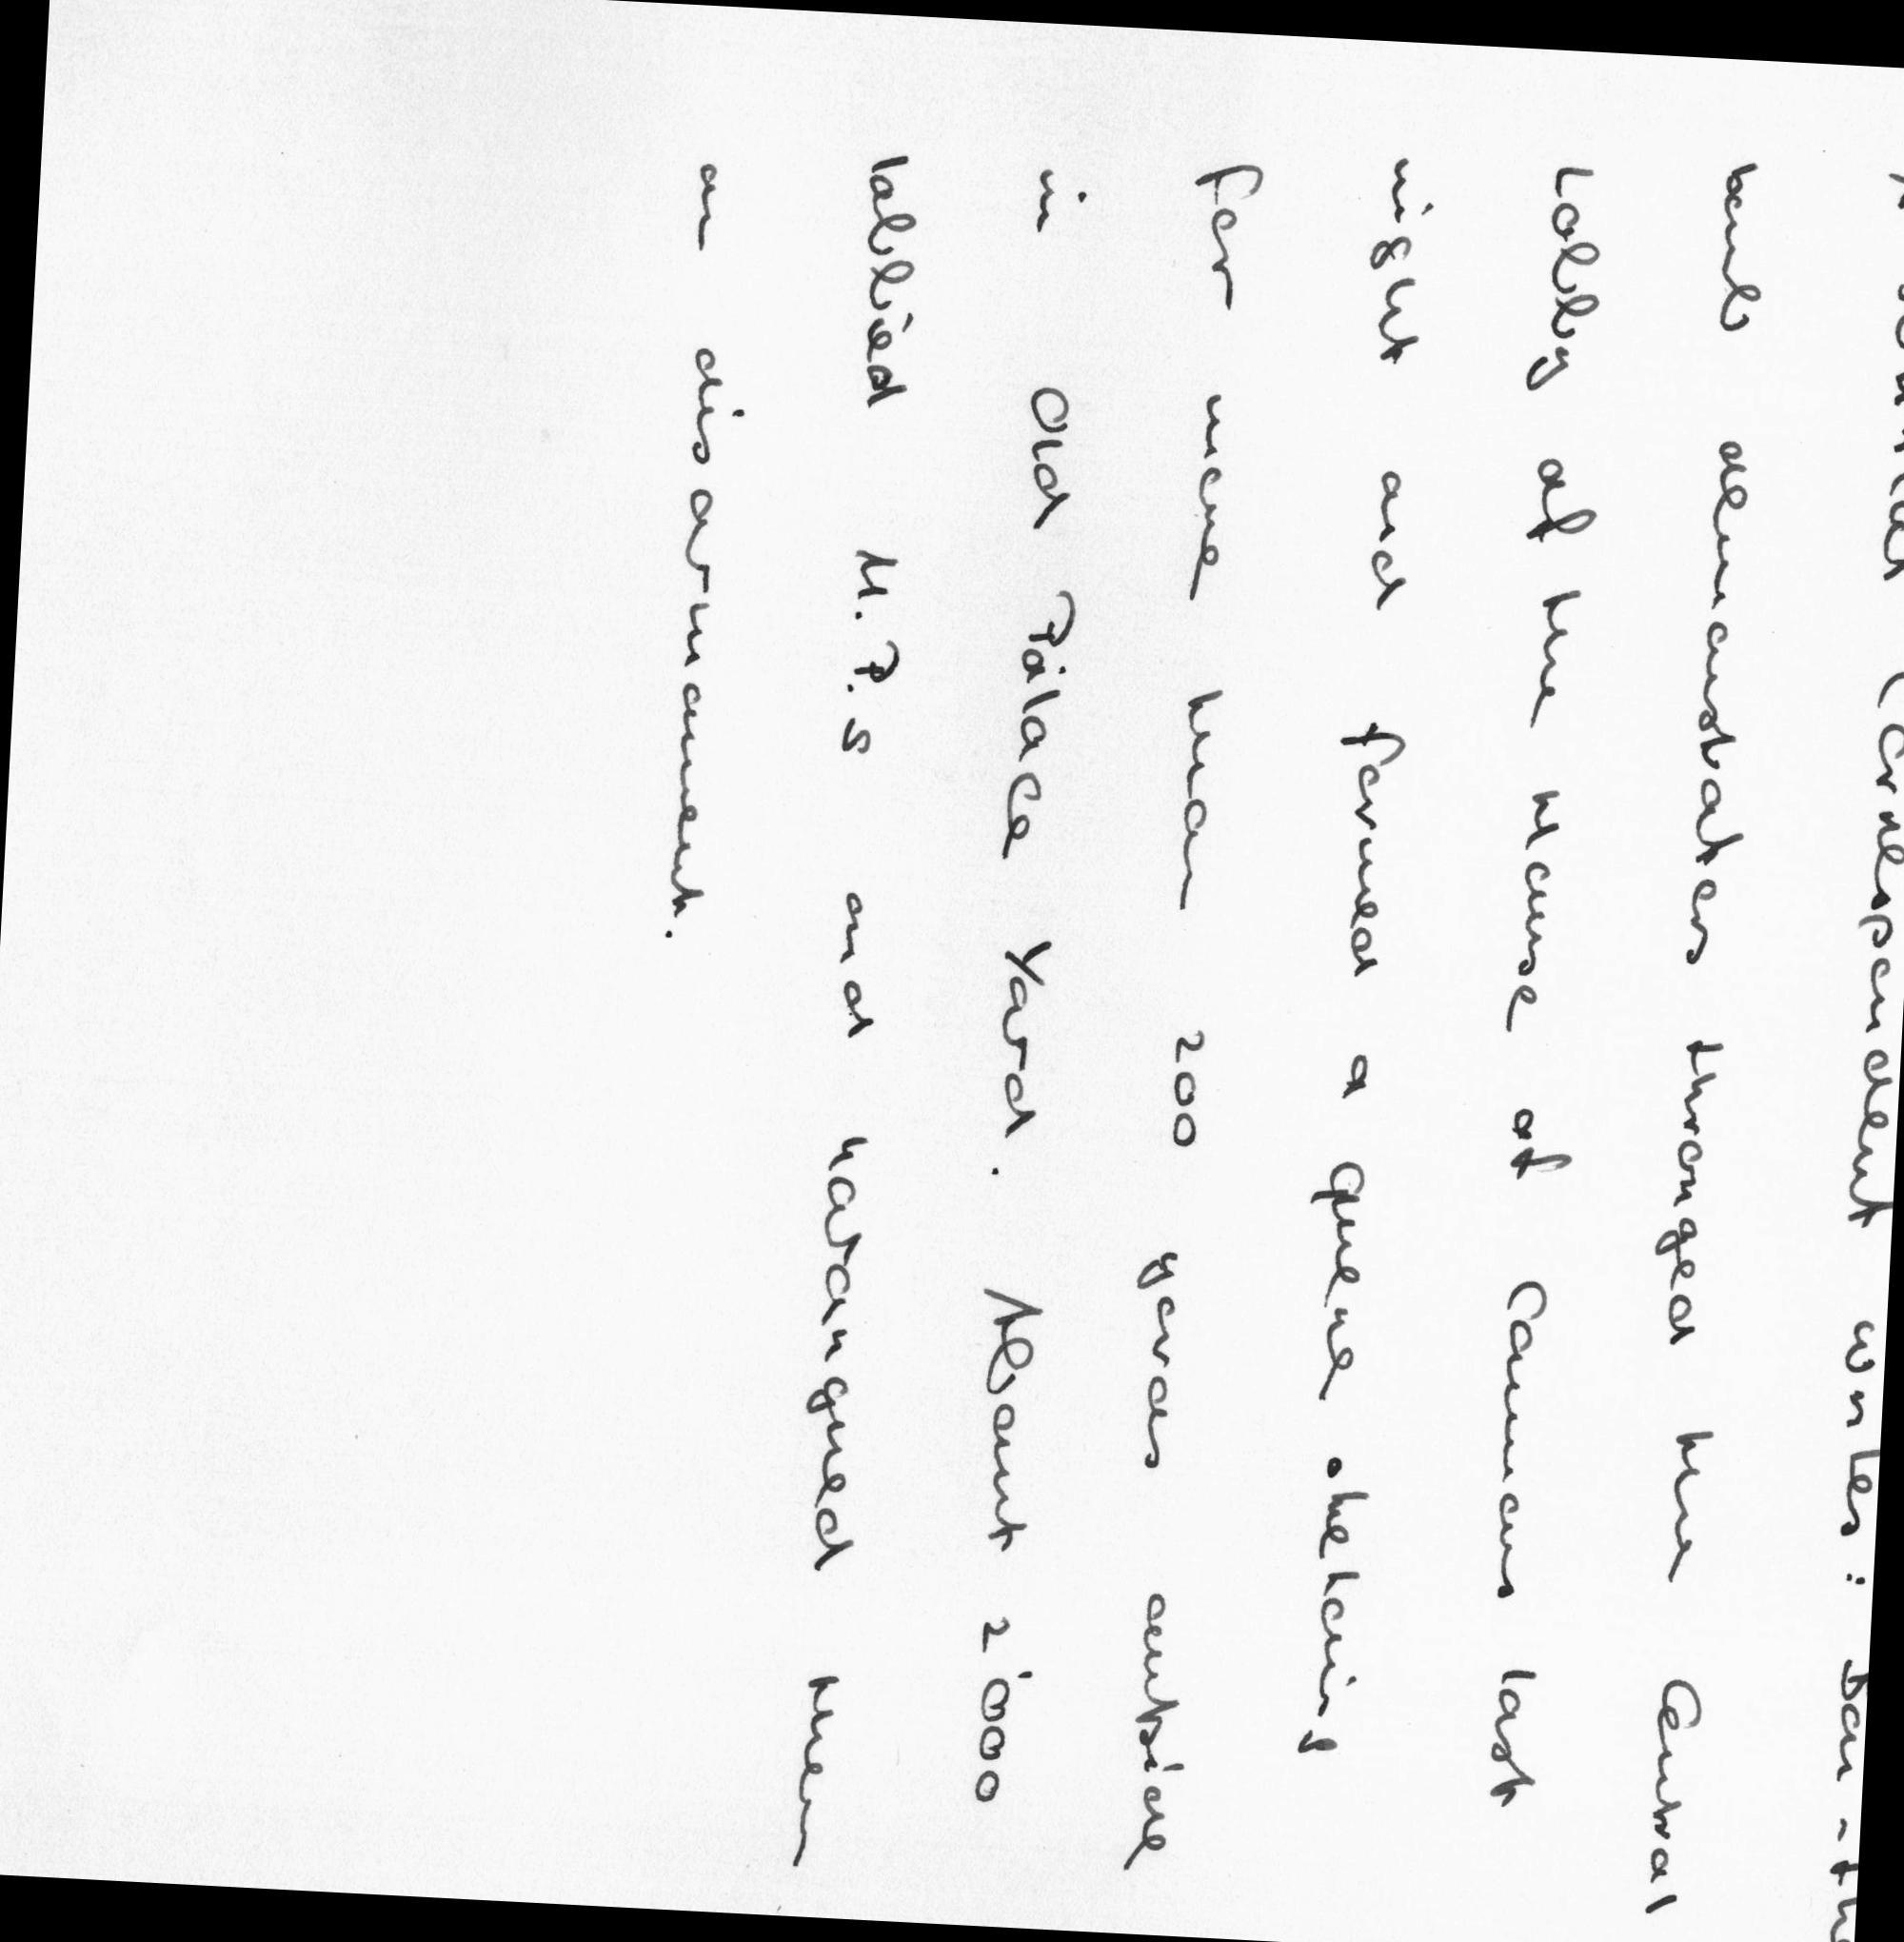 Correspondent writes: Ban-the-
bomb demonstrators thronged the Central
Lobby of the House of Commons last
night and formed a queue stretching
for more than 200 yards outside
in Old Palace Yard. About 2'000
lobbied M.P.s and harangued them
on disarmament.